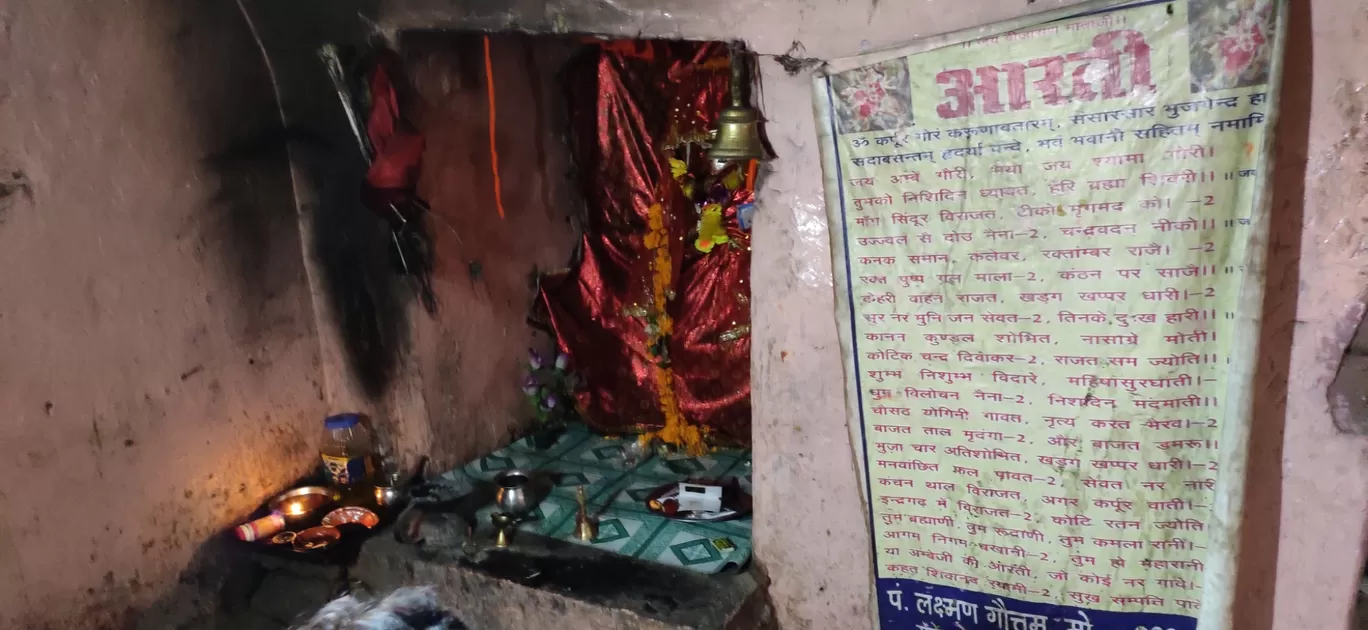 आरती
ॐ कर्पूर गौरं करूणावतारम्, संसारसार भुजगेन्द्र हा
सदाबसन्तम् हृदया वन्दे, भव भवानी सहितम् नमामि
जय अम्बे गौरी, मैया जय श्यामा गौरी।
तुमको निशिदिन ध्यावत, हरि ब्रह्मा शिवरी।। ।। जय
माँग सिंदूर विराजत, टीको मृगमद को। -2
उज्ज्वल से दोउ नैना-2, चन्द्रवदन नीको।। ।। ज
कनक समान, कलेवर, रक्ताम्बर राजै। -2
रक्त पुष्प गल माला-2, कंठन पर साजे।। ।।
केहरी वाहन राजत, खड़ग खप्पर धारी।-2
सुर नर मुनि जन सेवत-2, तिनके दुःख हारी।। ।।
कानन कुण्डल शोभित, नासाग्रे मोती।
कोटिक चन्द्र दिवाकर-2, राजत सम ज्योति।।
शुम्भ निशुम्भ विदारे, महिषासुरघाती।-
धुम्र विलोचन नैना-2, निशदिन मदमाती।।
चौसठ योगिनी गावत, नृत्य करत भैरव।-2
बाजत ताल मृदंगा-2, और बाजत डमरू।।
भुजा चार अतिशोभित, खड़ग खप्पर धारी।-2
मनवांछित फल पावत-2, सेवत नर नारी
कंचन थाल विराजत, अगर कर्पूर बाती।-
इन्द्रगढ़ में विराजत-2, कोटि रतन ज्योति
तुम ब्रह्माणी, तुम रूद्राणी, तुम कमला रानी।-
आगम निगम बखानी-2, तुम हो महारानी
या अम्बेजी की आरती, जो कोई नर गावे।-
कहत शिवानन्द स्वामी-2, सुख सम्पति पावे
पं. लक्ष्मण गौत्तम, मो.